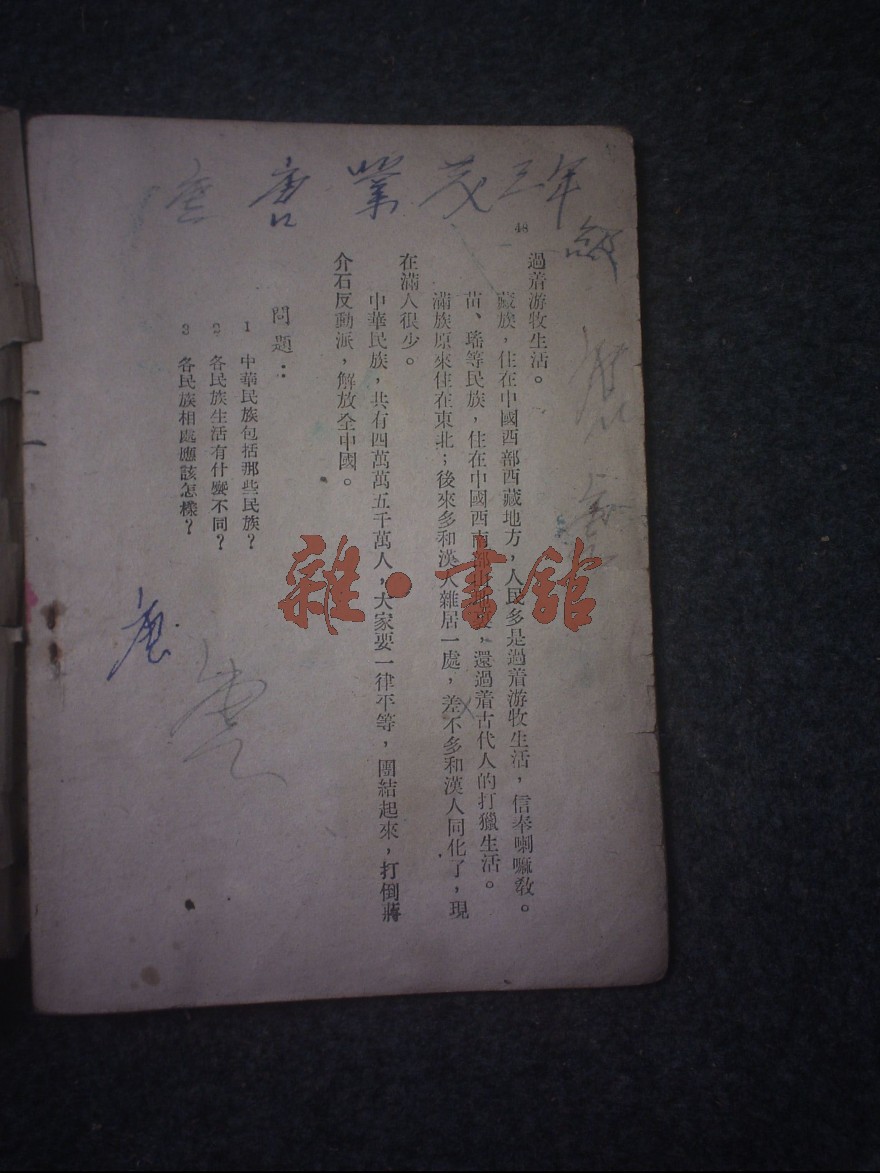 三年級
唐業茂
48
過着游牧生活。
藏族，住在中國西部西藏地方，人民多是過着游牧生活，信奉喇嘛敎。
苗、瑤等民族，住在中國西南部，還過着古代人的打獵生活。
滿族原來住在東北；後來多和漢人雜居一處，差不多和漢人同化了，現
在滿人很少。
中華民族，共有四萬萬五千萬人，大家要一律平等，團結起來，打倒蔣
介石反動派，解放全中國。
問題：
1 中華民族包括那些民族？
2 各民族生活有什麽不同？
3 各民族相處應該怎樣？
雜·書館